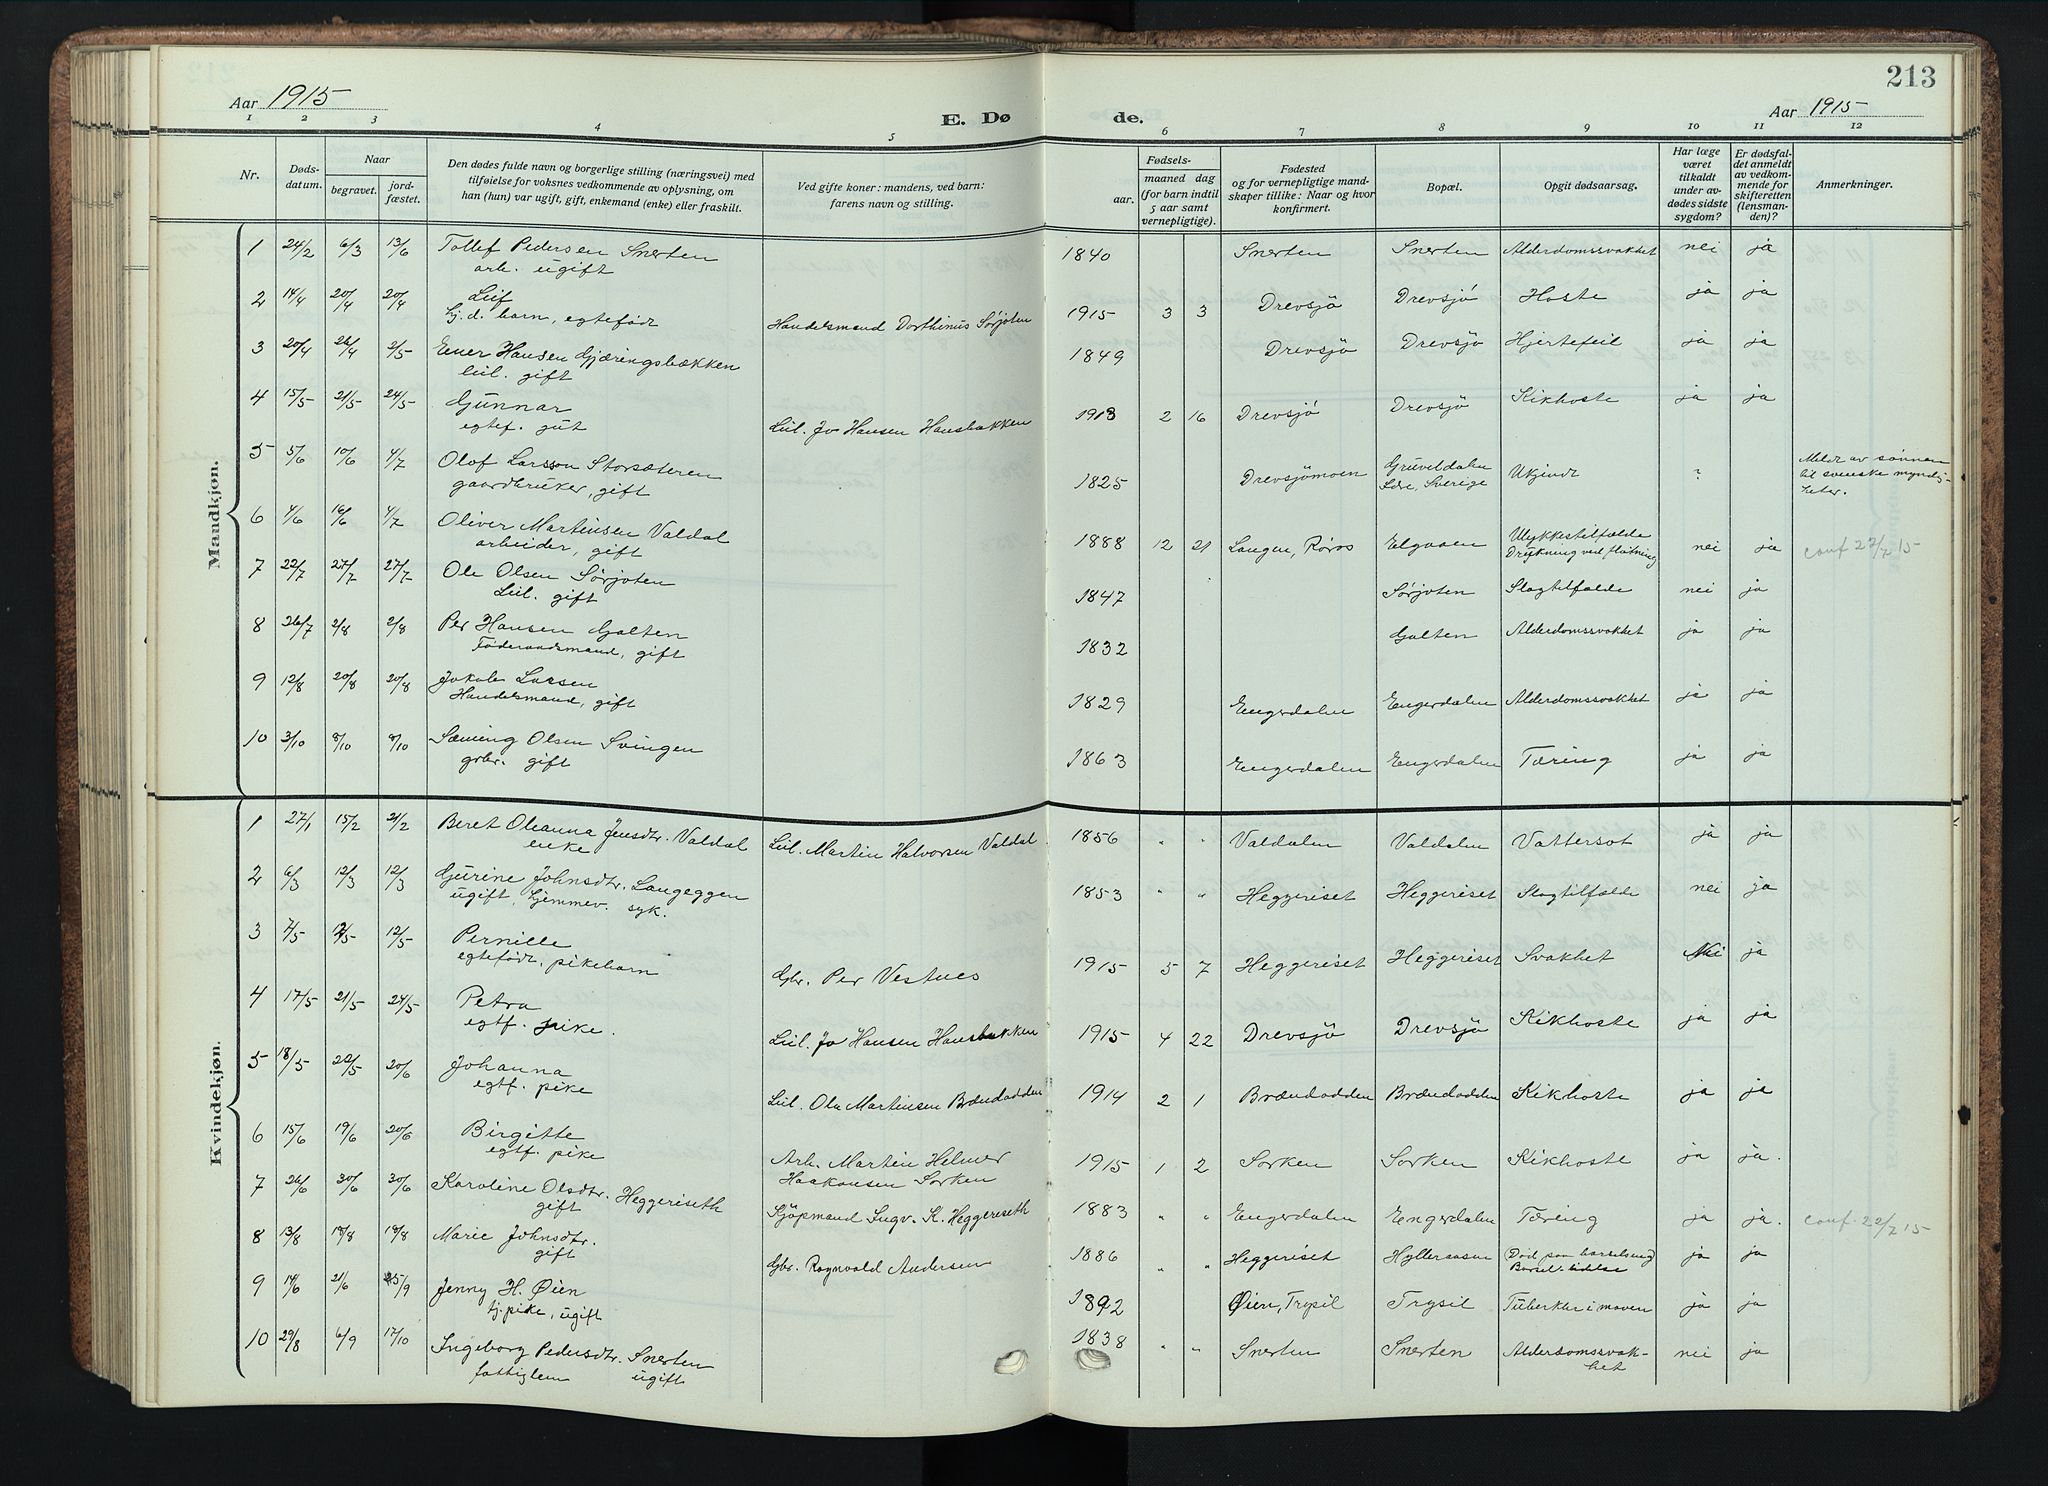 213
Aar 1915
E. Dø
de.
Aar 1915
1 2 3 4 5 6 7 8 9 10 11 12
Nr.
Dødsdatum.
Naar
begravet.
jordfæstet.
Den dødes fulde navn og borgerlige stilling (næringsvei) med
tilføielse for voksnes vedkommende av oplysning, om
han (hun) var ugift, gift, enkemand (enke) eller fraskilt.
Ved gifte koner: mandens, ved barn:
farens navn og stilling.
Fødsels-
aar.
maaned dag
(for barn indtil
5 aar samt
vernepligtige).
Fødested
og for vernepligtige mandskaper tillike: Naar og hvor
konfirmert.
Bopæl.
Opgit dødsaarsag.
Har læge
været
tilkaldt
under avdødes sidste
sygdom?
Er dødsfaldet anmeldt
av vedkommende for
skifteretten
(lensmanden)?
Anmerkninger.
Mandkjøn.
1 24/2 6/3 13/6 Tollef Pedersen Snerten 1840 Snerten Snerten Alderdomssvakhet nei ja
arb. ugift
2 14/4 20/4 20/4 Leif 1915 3 3 Drevsjö Drevsjö Hoste ja ja
hj.d. barn, egtefödt Handelsmand Dorthinus Sørjoten
3 20/4 26/4 2/5 Ener Hansen Gjæringsbækken 1849 Drevsjö Drevsjö Hjertefeil ja ja
leil. gift
4 15/5 21/5 24/5 Gunnar 1913 2 16 Drevsjö Drevsjö Kikhoste ja ja
egtef. gut Leil. Jo Hansen Hansbakken
5 5/6 10/6 4/7 Olof Larsson Storsæteren 1825 Drevsjömoen Gruveldalen Ukjendt ? Meldt av sönnen
gaardbruker, gift Idre, Sverige til svenske myndigheter.
6 4/6 16/6 4/7 Oliver Martinsen Valdal 1888 12 21 Langen, Røros Elgaaen Ulykkestilfælde nei ja conf 22/7 15
arbeider, gift Drukning ved flötning
7 22/7 27/7 27/7 Ole Olsen Sørjoten 1847 Sørjoten Slagtilfælde nei ja
Leil. gift
8 26/7 2/8 2/8 Per Hansen Galten 1832 Galten Alderdomssvakhet ja ja
Föderaadsmand, gift
9 12/8 20/8 20/8 Jakob Larsen 1829 Engerdalen Engerdalen Alderdomssvakhet ja ja
Handelsmand, gift
10 3/10 8/10 8/10 Sæming Olsen Svingen 1863 Engerdalen Engerdalen Tæring ja ja
grbr. gift
Kvindekjøn.
1 27/1 15/2 21/2 Beret Oleanna Jensdtr. Valdal Leil. Martin Halvorsen Valdal 1856 " " Valdalen Valdalen Vattersot ja ja
enke
2 6/3 12/3 12/3 Gurine Johnsdtr. Langeggen 1853 " " Heggeriset Heggeriset Slagtilfælde nei ja
ugift, hjemmev. syk.
3 7/5 12/5 Pernille 1915 5 7 Heggeriset Heggeriset Svakhet Nei ja
egtefödt, pikebarn Gbr. Per Vestnes
4 17/5 21/5 24/5 Petra 1915 4 22 Drevsjö Drevsjö Kikhoste ja ja
egtf. pike. Leil. Jo Hansen Hansbakken
5 18/5 22/5 20/6 Johanna 1914 2 1 Brændodden Brændodden Kikhoste ja ja
egtf. pike Leil. Ole Martinsen Brændodden
6 15/6 19/6 20/6 Birgitte 1915 1 2 Sorken Sorken Kikhoste ja ja.
egtf. pike Arb. Martin Helmer
Haakonsen Sorken
7 26/6 30/6 30/6 Karoline Olsdtr. Heggeriseth Kjöpmand Ingv. K. Heggeriseth 1883 " " Engerdalen Engerdalen Tæring ja ja. conf. 22/7 15
gift
8 13/8 18/8 18/8 Marie Johnsdtr. Gbr. Ragnvald Andersen 1886 " " Heggeriset Hylleraasen Död paa barselseng ja ja
gift Barsel
9 14/6 21/6 25/9 Jenny H. Øien 1892 Øien, Trysil Trysil Tuberkler i maven ja ja
tj.pike, ugift
10 29/8 6/9 17/10 Ingeborg Pedersdtr. Snerten 1838 " " Snerten Snerten Alderdomssvakhet nei ja
fattiglem ugift